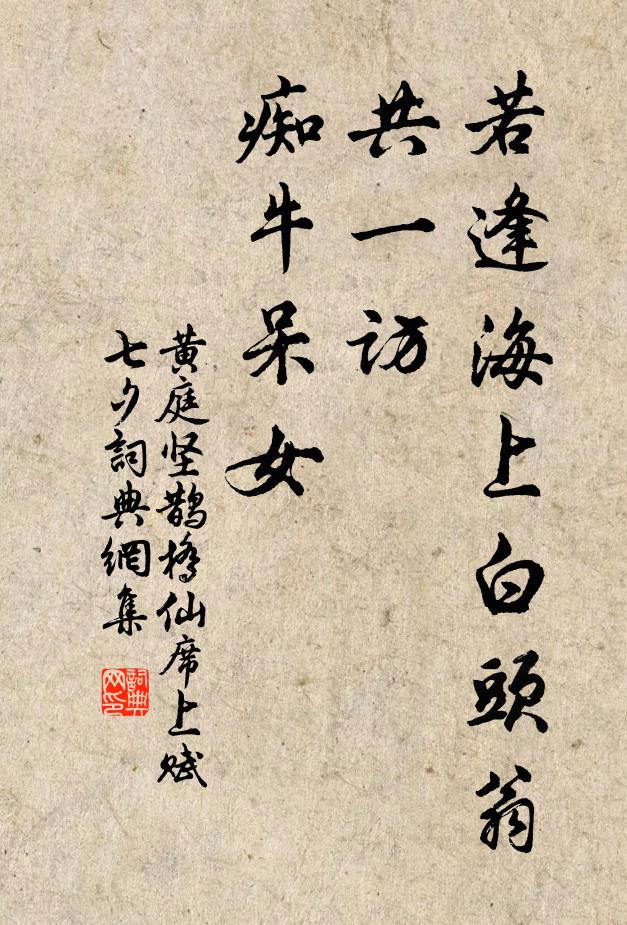 若逢海上白頭翁
共一访
痴牛呆女
黄庭坚鹊橋仙席上赋
七夕詞典網集
詞典
网印